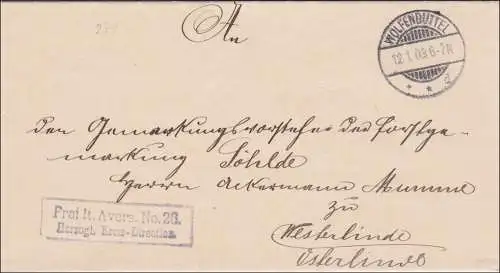 234
An
WOLFENBÜTTEL
12.1.03.6-7N
* * d
den Gemarkungsvorsteher der Forstge-
markung Söhlde
Herrn Ackermann Mumme
zu
Westerlinde
Osterlinde
Frei lt. Avers. No. 26.
Herzogl. Kreis-Direction.